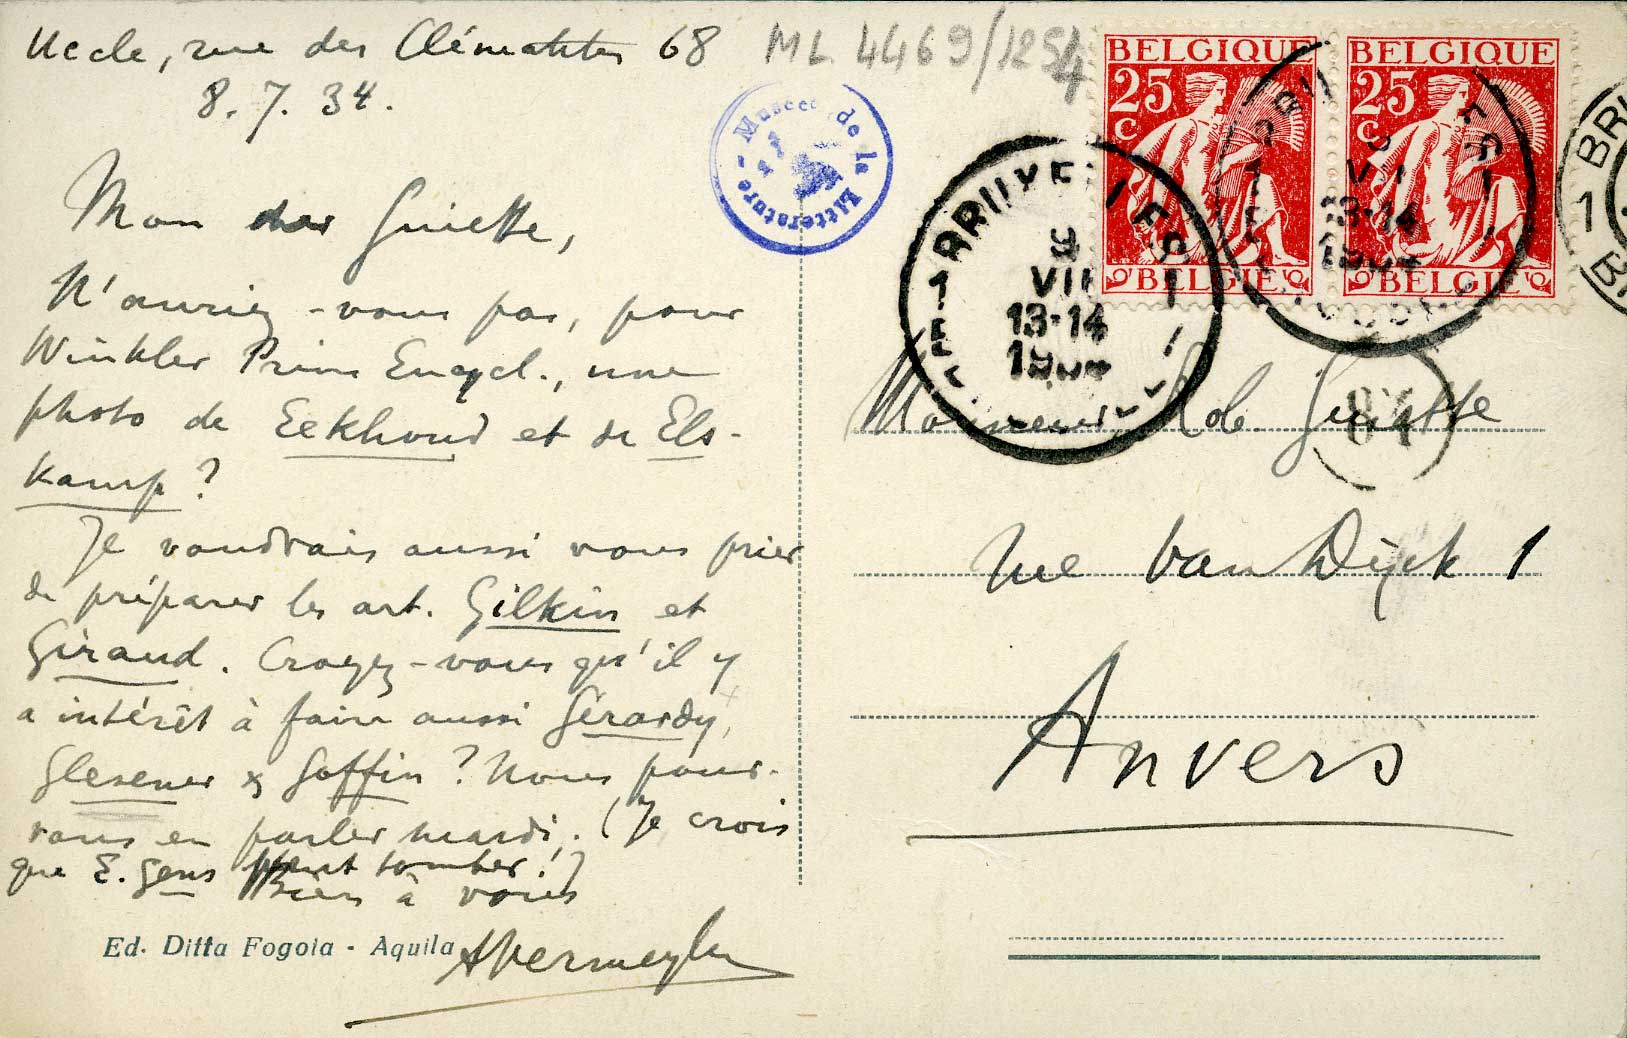 Uccle, rue des Clématites 68
8. 7. 34.
ML 4469/1254
Musée de la Littérature
Mon cher Guiette,
N'auriez-vous pas, pour
Winkler Prins Encycl., une
photo de Eekhoud et de Els-
kamp ?
Je voudrais aussi vous prier
de préparer les art. Gilkin et
Giraud. Croyez-vous qu'il y
a intérêt à faire aussi Gérardy,
Glesener & Goffin ? Nous pour-
rons en parler mardi. (Je crois
que E. Gens peut tomber !)
Bien à vous
AVermeylen
Ed. Ditta Fogola - Aquila
BELGIQUE
25 c
BELGIË
BELGIQUE
25 c
BELGIË
1 BRUXELLES 1
9
VII
13-14
1934
13-14
87
1
Monsieur Rob. Guiette
rue Van Dijck 1
Anvers